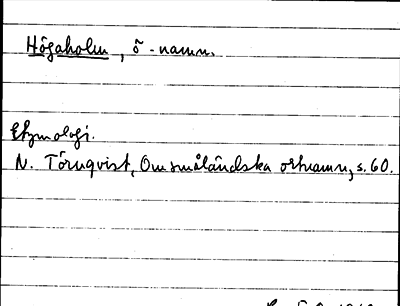 Högaholm, ö-namn.
Etymologi.
N. Törnqvist, Om småländska ortnamn, s. 60.